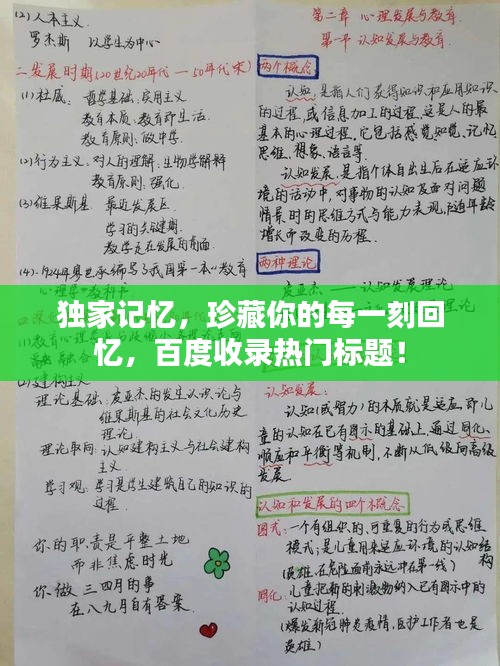 (2)人本主义.
罗杰斯 以学生为中心
二.发展时期(20世纪20年代—50年代末)
(1)杜威: 哲学基础:实用主义
教育本质:教育即生活.
教育原则:做中学.
(2)行为主义:对人的理解:生物学解释
教育原则:强化.
(3)维果斯基 最近发展区.
学习的关键期.
教学走在发展的前面.
(4).1924年廖世承编写了我国第一本《教育
心理学
(2)建构主义
理论基础:皮亚杰的发生认识论与
维果斯基的社会文化历史
理论.
理论取向:认知建构主义与社会建构
主义.
学习观:学习是学生建筑自己的知识的
过程.
你的职责是平整土地
而非焦虑时光
你做三四月的事
在八九月自有答案.
第二章 心理发展与教育.
第一节 认知发展与教育.
两个概念
认知,是指人们获得知识和应用知识
的过程,或信息加工的过程,这是人的最
基本的心理过程,它包括感觉知觉、记忆
思维、想象、语言等.
认知发展,是指个体自出生后在适应环
境的活动中,对事物的认知及面对问题
情景时的思维方式与能力表现,随年龄
增长而改变的历程.
两种理论
皮亚杰——发展理论
独家记忆，珍藏你的每一刻回
忆，百度收录热门标题！
认知(或智力)的本质就是适应,即儿
童的认知是在已有图示的基础上,通过同化、
顺应和平衡等机制,不断从低级向高级
发展.
认知和发展的四个概念
图式:一个有组织的、可重复的行为或思维
模式;是儿童用来适应环境的认知结构
(英雄,在危险面前永远冲在第一线)
同化:儿童把新的刺激物纳入已有图示中的
认知过程.
(爆发新冠肺炎疫情,医护工作者也是
英雄)